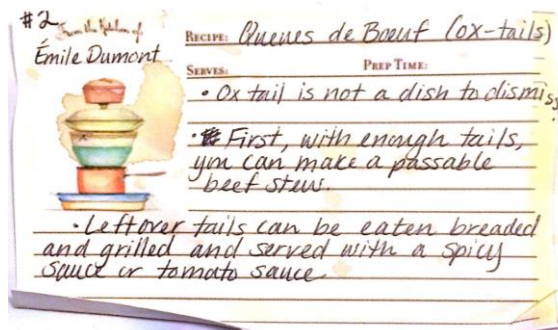 #2
From the Kitchen of
Émile Dumont
RECIPE: Queues de Bœuf (ox-tails)
SERVES: PREP TIME:
• Ox tail is not a dish to dismiss.
• First, with enough tails,
you can make a passable
beef stew.
• Leftover tails can be eaten breaded
and grilled and served with a spicy
sauce or tomato sauce.